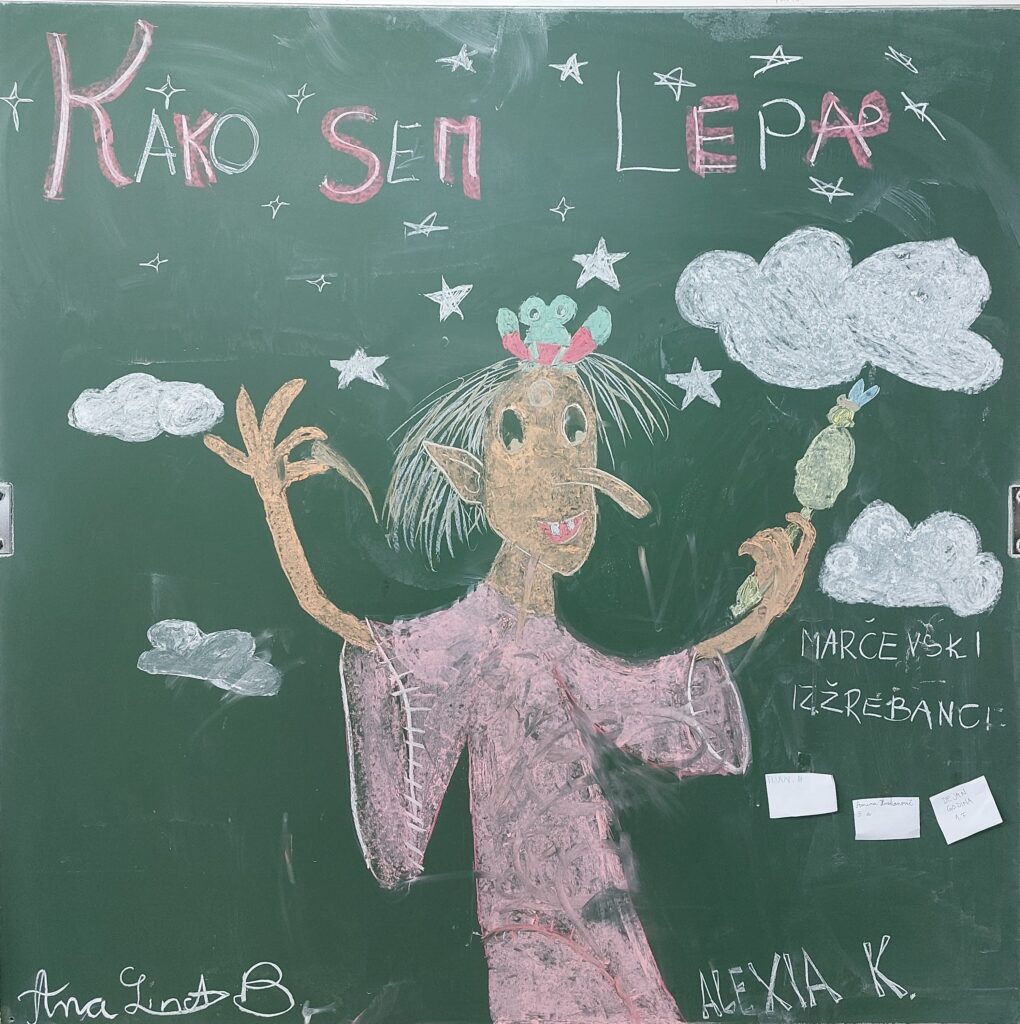 KAKO SEM LEPA
MARČEVSKI
IZŽREBANCI
IVAN. H
Amina
5. a
DEJAN
GODINA
Ana Lina B.
ALEXIA K.